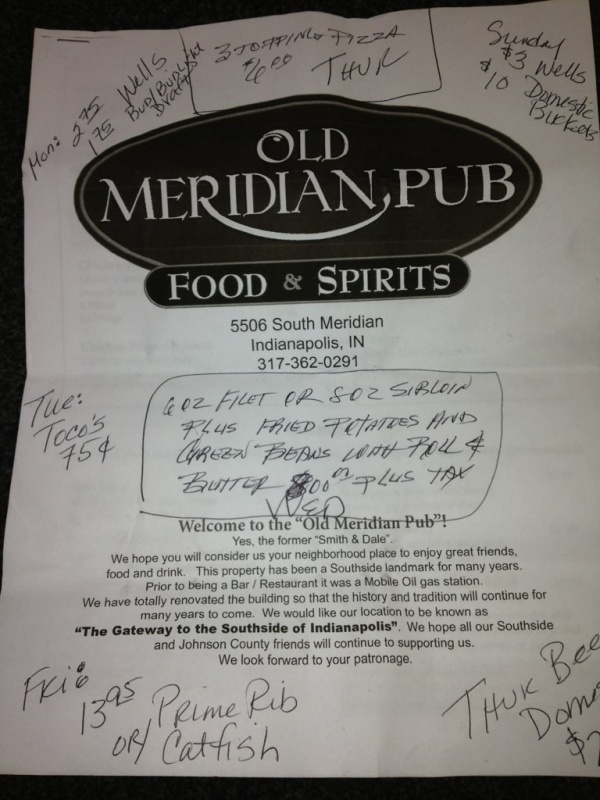 3 TOPPING PIZZA
$6.00
THUR
Sunday
$3 Wells
$10 Domestic
Buckets
Mon: 2.75 Wells
1.75 Bud/Bud Light
Drafts
OLD
MERIDIAN PUB
FOOD & SPIRITS
5506 South Meridian
Indianapolis, IN
317-362-0291
Tue:
Toco's
75¢
6 OZ FILET OR 8 OZ SIRLOIN
PLUS FRIED POTATOES AND
GREEN BEANS WITH ROLL &
BUTTER PLUS TAX
WED
Welcome to the "Old Meridian Pub"!
Yes, the former "Smith & Dale".
We hope you will consider us your neighborhood place to enjoy great friends,
food and drink. This property has been a Southside landmark for many years.
Prior to being a Bar / Restaurant it was a Mobile Oil gas station.
We have totally renovated the building so that the history and tradition will continue for
many years to come. We would like our location to be known as
"The Gateway to the Southside of Indianapolis". We hope all our Southside
and Johnson County friends will continue to supporting us.
We look forward to your patronage.
Fri:
13.95 Prime Rib
OR/ Catfish
THUR Bee
Domes
$